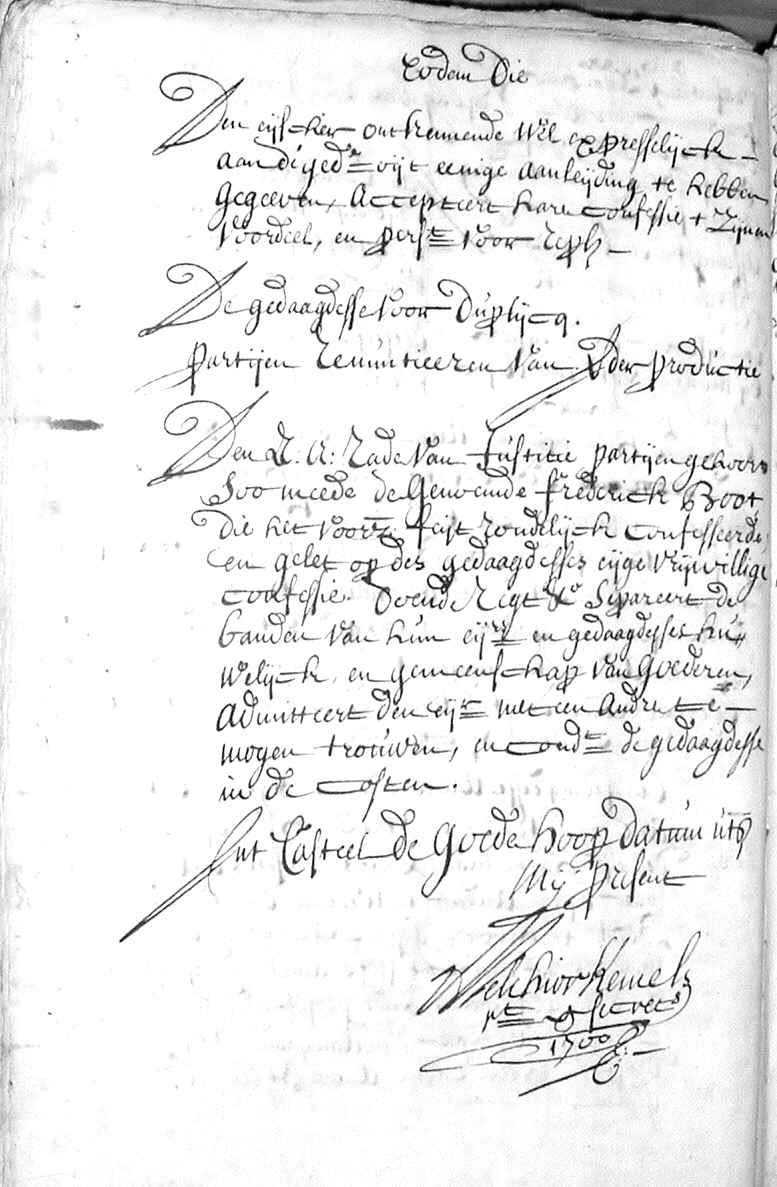 Eodem Die
Den eijscher ontkennende wel expresselijck
aan de ged:e oijt eenige aanleijding te hebben
gegeeven, Accepteert hare confessie t zijnen
voordeel, en pers:t voor repl:
De gedaagdesse voor duplijcq.
partijen renuntieeren van verder productie
Den E. A: Rade van Justitie partijen gehoort
Soo meede de Genoemde frederick Boot,
die het voorz: feijt rondelijck confesseerde,
en gelet op des gedaagdesses eijge vrijwillige
confessie. Doende Regt &a Separeert de
banden van hun eij:rs en gedaagdesses hu
welijck, en gemeenschap van Goederen,
admitteert den eij:r met een andre te
mogen trouwen, en cond:t de gedaagdesse
in de costen.
Int Casteel de Goede hoop datum uts
Mij present
Melchior Kemels
r:t & secret:s
1700